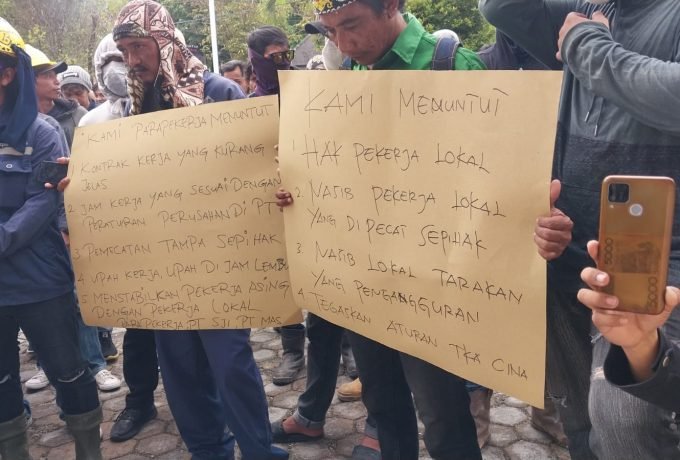 "KAMI PARA PEKERJA MENUNTUT
1 KONTRAK KERJA YANG KURANG
JELAS
2 JAM KERJA YANG SESUAI DENGAN
PERATURAN PERUSAHAN DI PT
3 PEMECATAN TAMPA SEPIHAK
4 UPAH KERJA, UPAH DI JAM LEMBU
5 MENSTABILKAN PEKERJA ASING
DENGAN PEKERJA LOKAL
PARA PEKERJA PT SJI, PT MAS
KAMI MENUNTUT
1 HAK PEKERJA LOKAL
2 NASIB PEKERJA LOKAL
YANG DI PECAT SEPIHAK
3 NASIB LOKAL TARAKAN
YANG PENGANGGURAN
4 TEGASKAN ATURAN TKA CINA
5000
5000